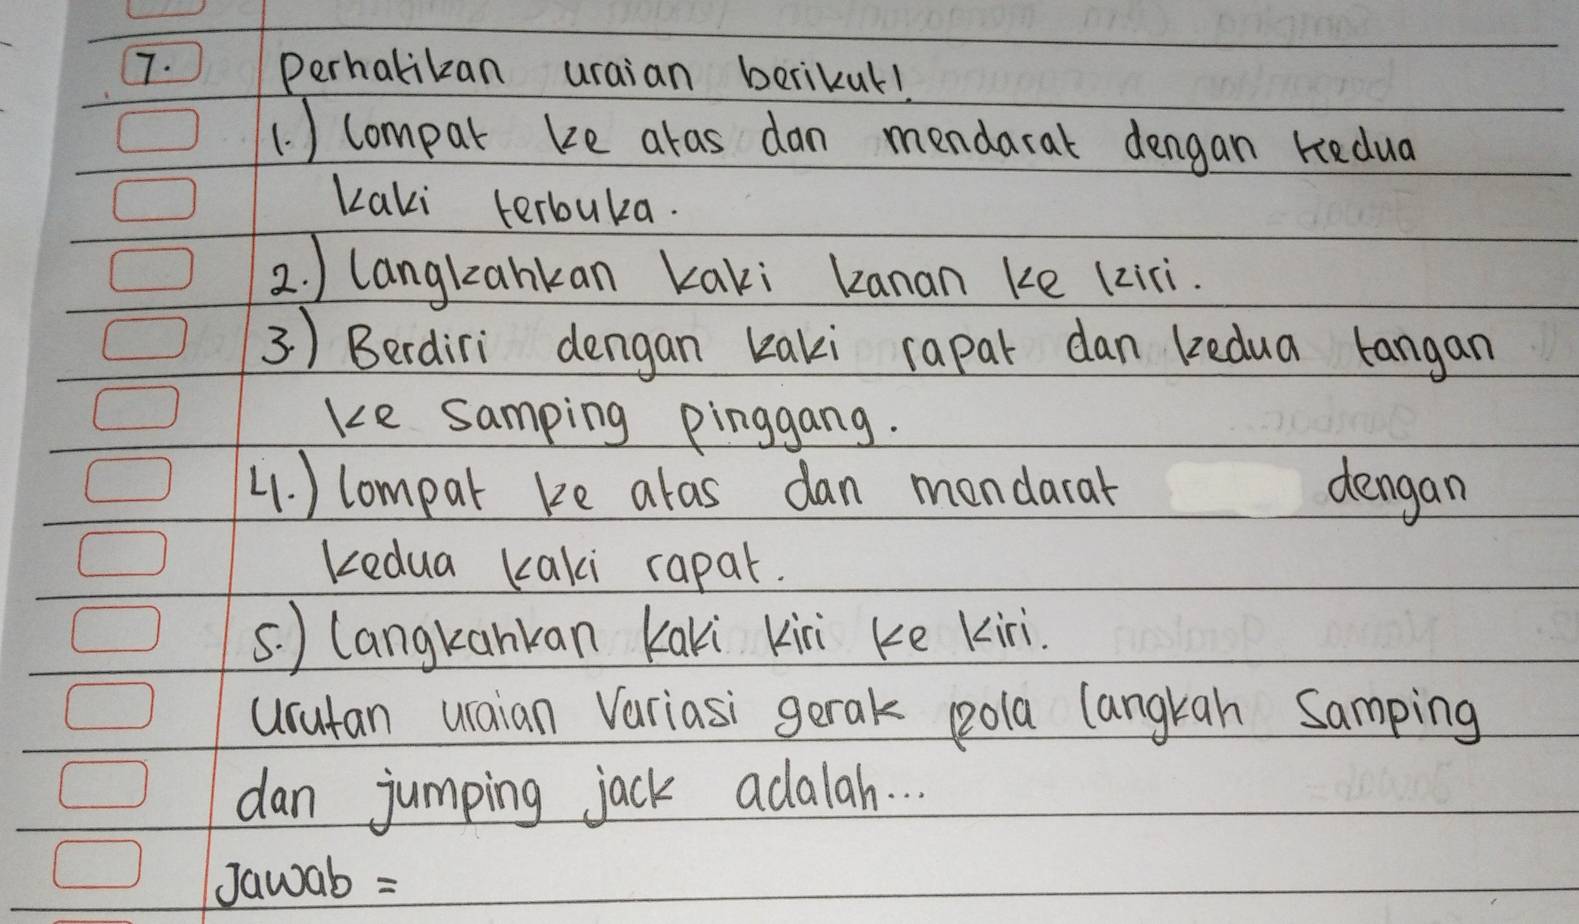 7. Perhatikan uraian berikut!
1.) Lompat ke atas dan mendarat dengan kedua
kaki terbuka.
2.) Langkahkan kaki kanan ke kiri.
3.) Berdiri dengan kaki rapat dan kedua tangan
ke samping pinggang.
4.) Lompat ke atas dan mendarat dengan
kedua kaki rapat.
5.) Langkahkan kaki kiri ke kiri.
Urutan uraian Variasi gerak pola langkah Samping
dan jumping jack adalah...
Jawab =